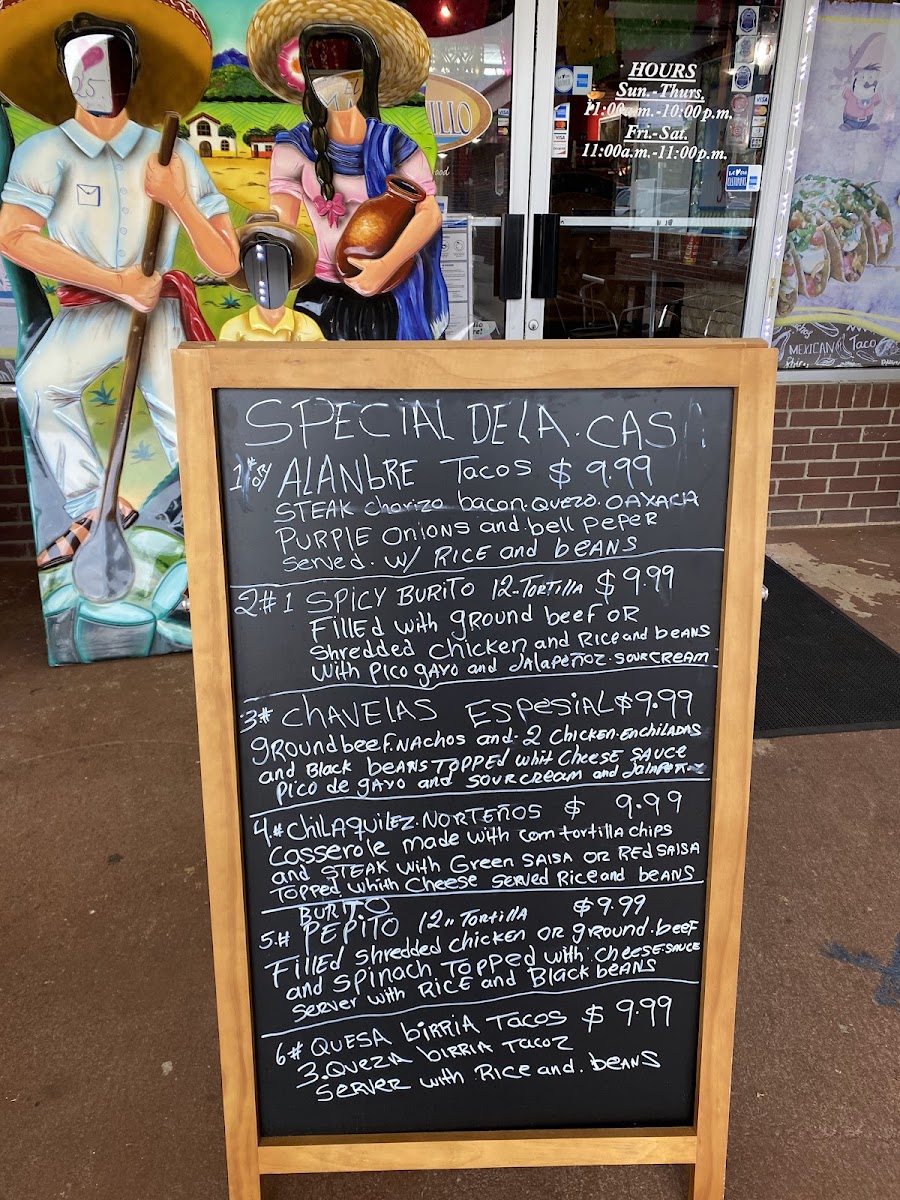 25
MA
ILLO
HOURS
Sun.-Thurs.
11:00a.m.-10:00p.m.
Fri.-Sat.
11:00a.m.-11:00p.m.
VISA
MEXICAN Taco
SPECIAL DE LA. CASA
1# ALANbRE Tacos $ 9.99
STEAK chorizo bacon. QUEZO. OAXACA
PURPlE ONIONS and. bell PEPER
SERVED. W/ RICE and bEANS
2#1 SPICY BURITO 12-TORTILLA $ 9.99
FILLEd with gROUND bEEF OR
Shredded chicken and RICE and bEANS
with PICO gAYO and JALAPEÑOZ. SOURCREAM
3# CHAVELAS ESPESIAL $9.99
gROUNDbEEF. NAChos and. 2 ChICKEN. ENChILADAS
and BlACK bEANS TOPPED whit ChEESE SAUCE
PICO de gAYO and SOURCREAM and
4.# ChILAQUILEZ. NORTEÑOS $ 9.99
CASSEROLE made with corn tortillA chips
and STEAK with GREEN SALSA OR RED SALSA
TOPPED whith ChEESE SERVED RICE and bEANS
BURITO
5.# PEPITO 12" TORTILLA $9.99
FILLED Shredded chicken OR gROUND. bEEF
and SPINACH TOPPED with chEESE. SAUCE
SERVER with RICE and BlACK bEANS
6# QUESA bIRRIA TACOS $ 9.99
3. QUEZA bIRRIA TACOZ
SERVER with RICE and. bEANS